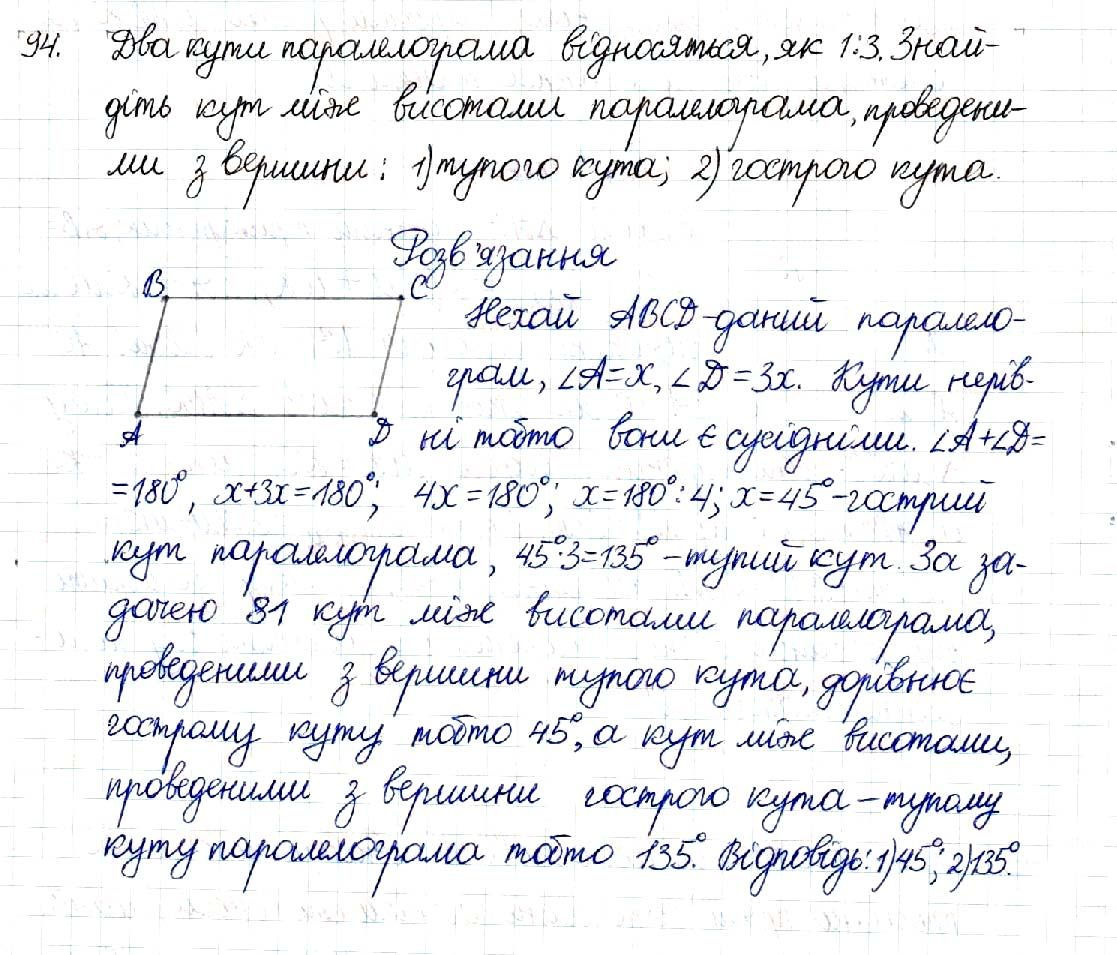 94. Два кути паралелограма відносяться, як 1:3. Знай-
діть кут між висотами паралелограма, проведени-
ми з вершини: 1) тупого кута; 2) гострого кута.
Розв'язання
B C
Нехай ABCD-даний паралело-
грам, ∠A=x, ∠D=3x. Кути нерів-
A D ні тобто вони є сусідніми. ∠A+∠D=
=180°, x+3x=180°; 4x=180°; x=180°:4; x=45°-гострий
кут паралелограма, 45°·3=135°-тупий кут. За за-
дачею 81 кут між висотами паралелограма,
проведеними з вершини тупого кута, дорівнює
гострому куту тобто 45°, а кут між висотами,
проведеними з вершини гострого кута-тупому
куту паралелограма тобто 135°. Відповідь: 1)45°; 2)135°.